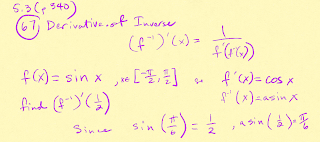 5.3 (p 340)
67) Derivative of Inverse
(f⁻¹)'(x) = 1 / f'(f⁻¹(x))
f(x) = sin x , x∈ [-π/2, π/2] so f'(x) = cos x
find (f⁻¹)'(1/2) f⁻¹(x) = asin x
Since sin (π/6) = 1/2 , asin(1/2) = π/6